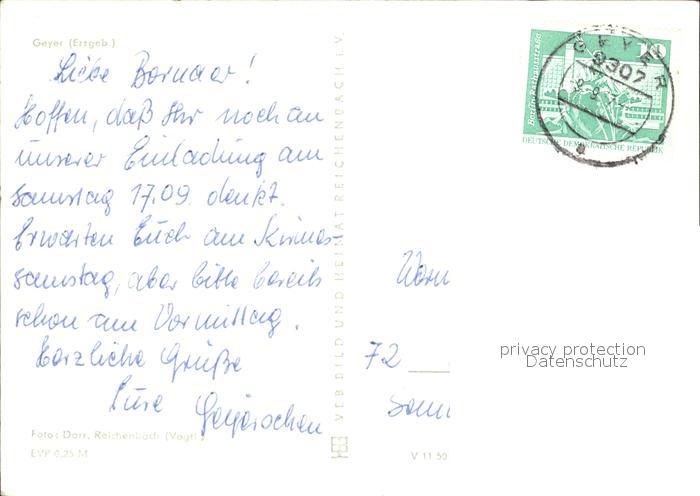 Geyer (Erzgeb.)
Liebe Bornaer!
Hoffen, daß Ihr noch an
unserer Einladung am
Samstag 17.09. denkt.
Erwarten Euch am Kirmes-
samstag, aber bitte bereits
schon am Vormittag.
Herzliche Grüße
Eure Geyerschen
Foto: Darr, Reichenbach (Vogtl.)
EVP 0,25 M
VEB BILD UND HEIMAT REICHENBACH i. V.
V 11 50
GEYER
9307
a
Berlin, Rathausstraße
10
DEUTSCHE DEMOKRATISCHE REPUBLIK
72
privacy protection
Datenschutz